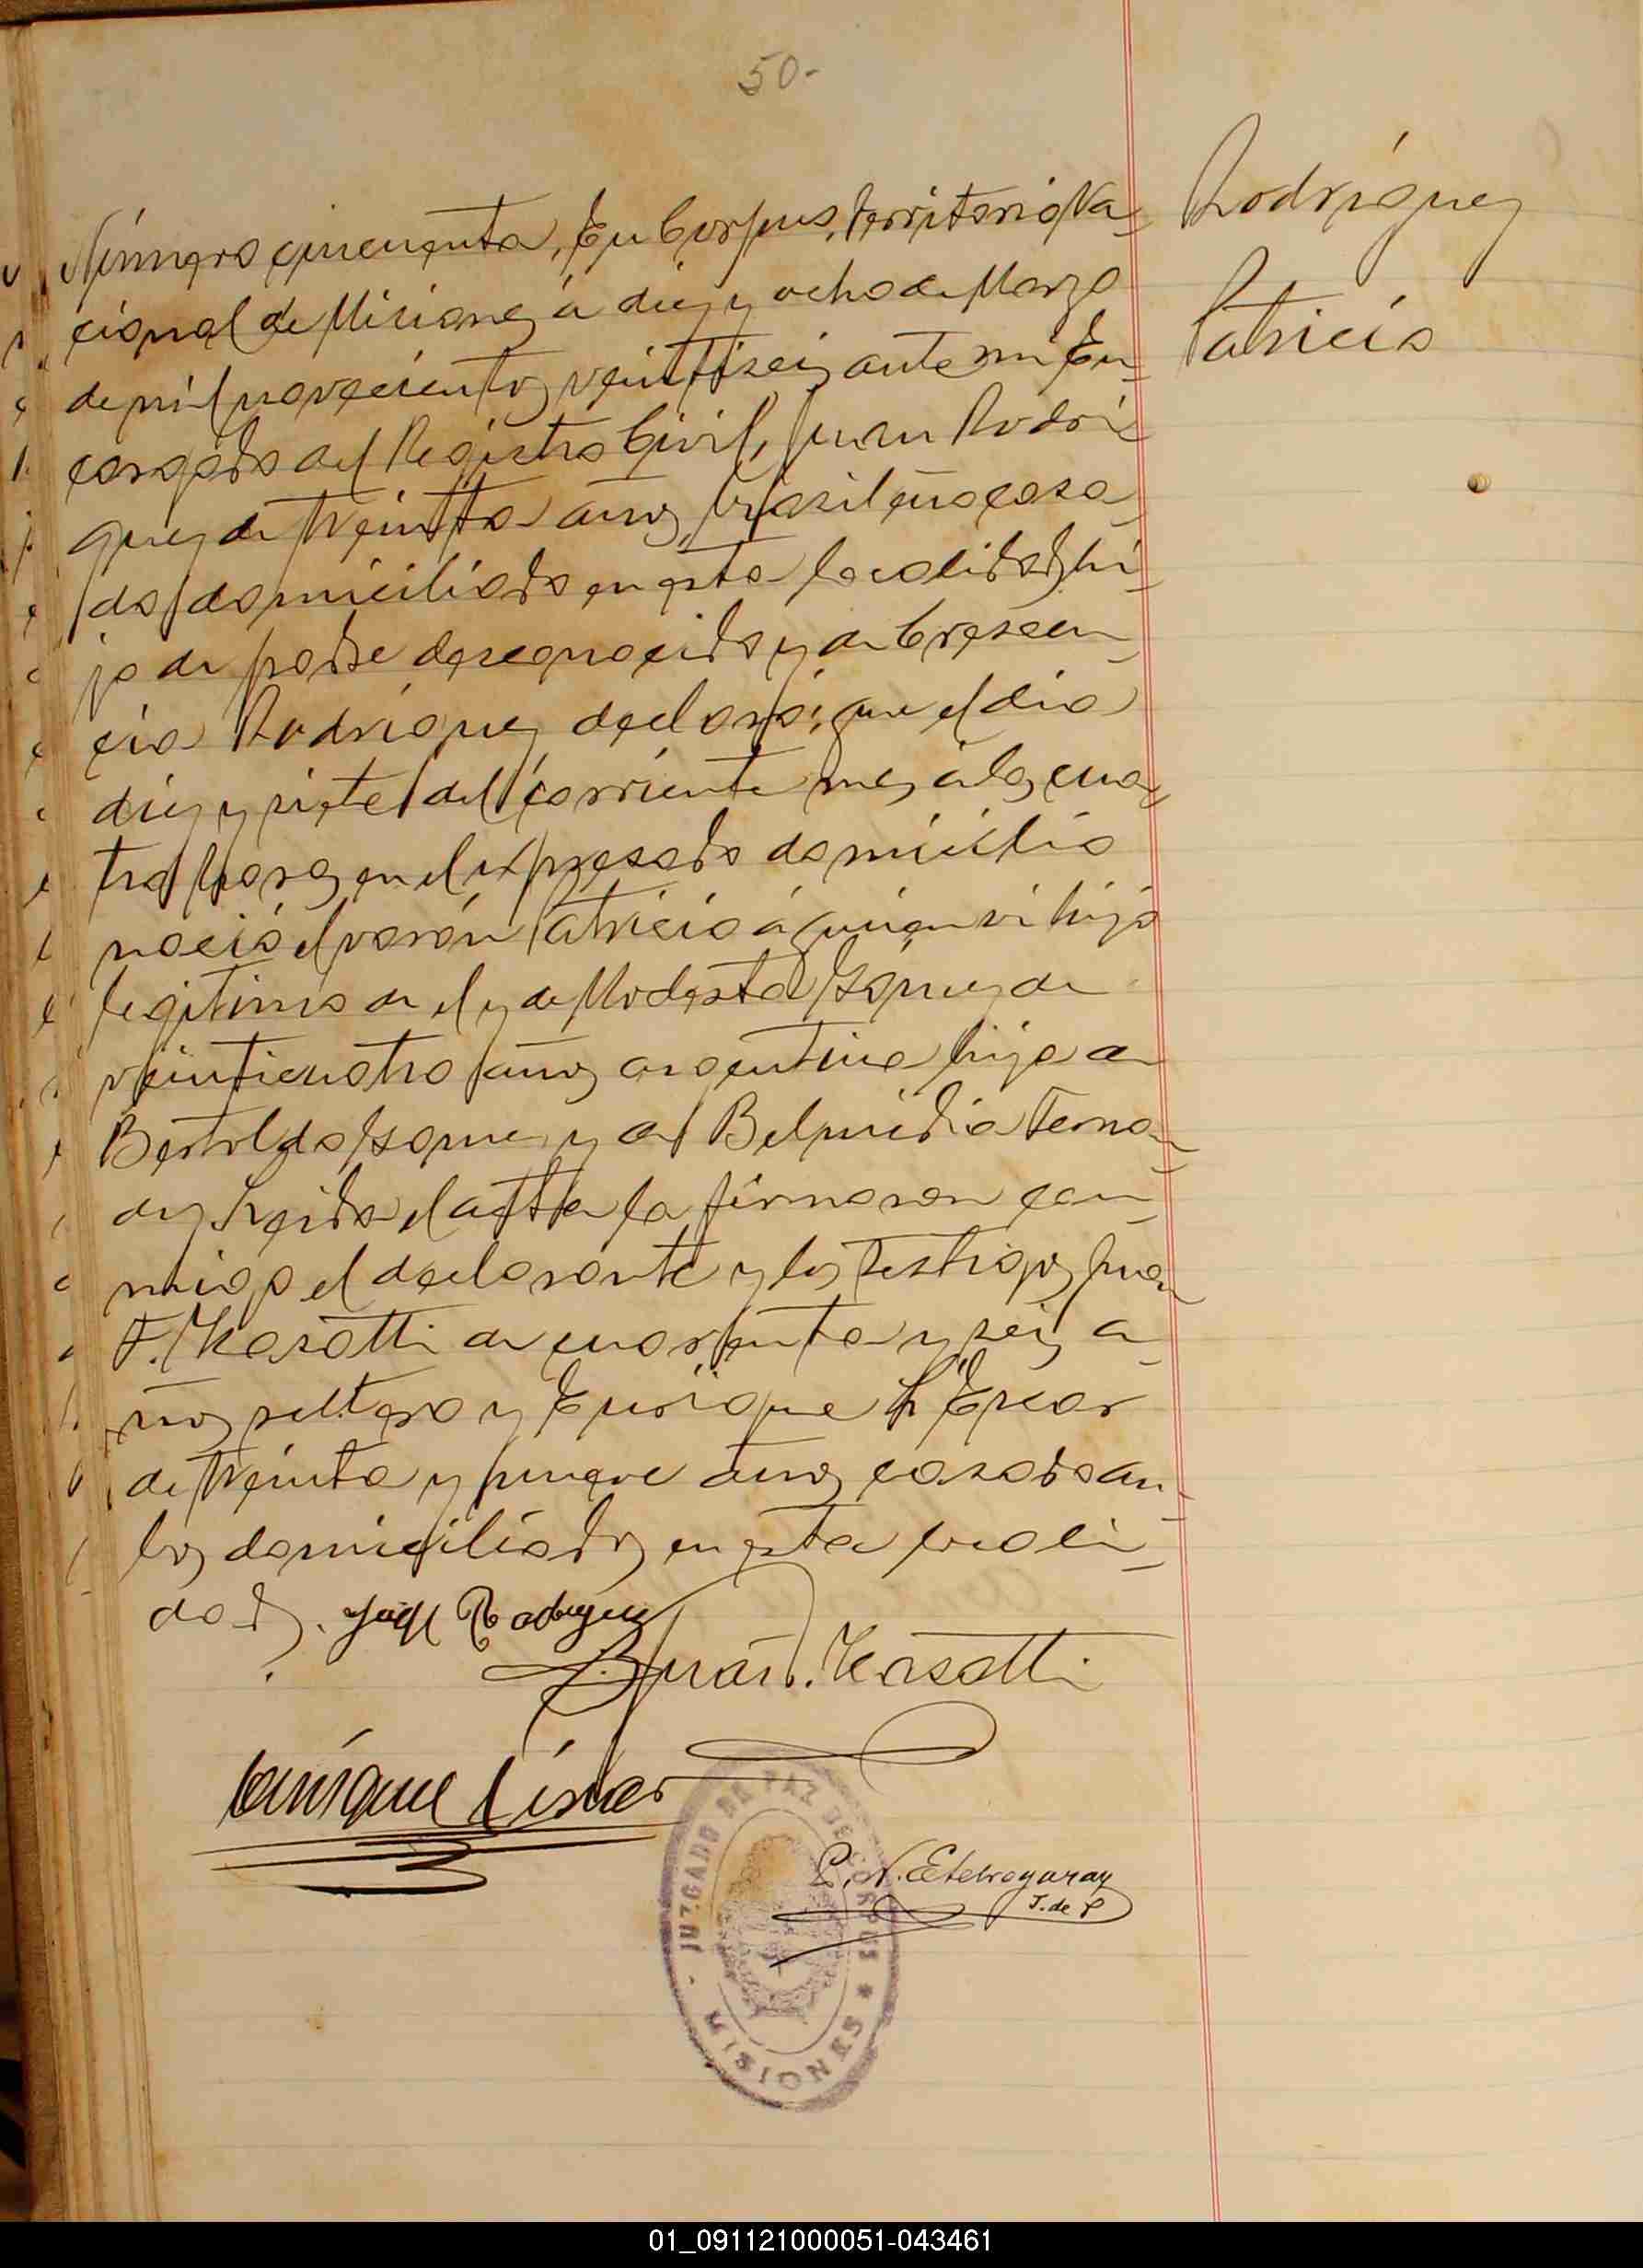 50-
Rodriguez
Patricio
Número cincuenta, En Corpus, Territorio Na-
cional de Misiones á diez y ocho de Marzo
de mil novecientos veintiseis ante mi En-
cargado del Registro Civil, Juan Rodri-
guez de treinta años, brasileño casa-
do domiciliado en esta localidad, hi-
jo de padre desconocido y de Crescen-
cia Rodriguez declaró; que el dia
diez y siete del corriente mes á las cua-
tro horas en el expresado domicilio
nació el varón Patricio á quien vi hijo
legitimo de el y de Modesta de
veinticuatro años argentina hija de
Bertoldo y de Belmidia Fernan-
dez Leida el acta la firmaron con-
migo el declarante y los testigos Juan
F. Kasatti de cuarenta y seis a-
ños soltero y Enrique L Escar
de treinta y nueve años casado am-
bos domiciliados en esta locali-
dad.
Rodriguez
Juan F. Kasatti
Enrique
P. N. Etchegaray
J. de P
JUZGADO DE PAZ DE CORPUS
MISIONES
01_091121000051-043461